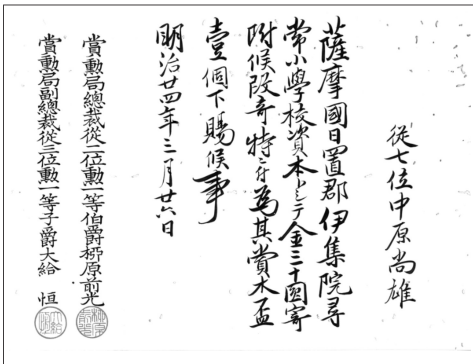 從七位中原尚雄
薩摩國日置郡伊集院尋
常小學校資本トシテ金三十圓寄
附候段奇特ニ付為其賞木盃
壹個下賜候事
明治廿四年三月廿六日
賞勲局總裁從二位勲一等伯爵栁原前光
賞勲局副總裁從三位勲一等子爵大給恒